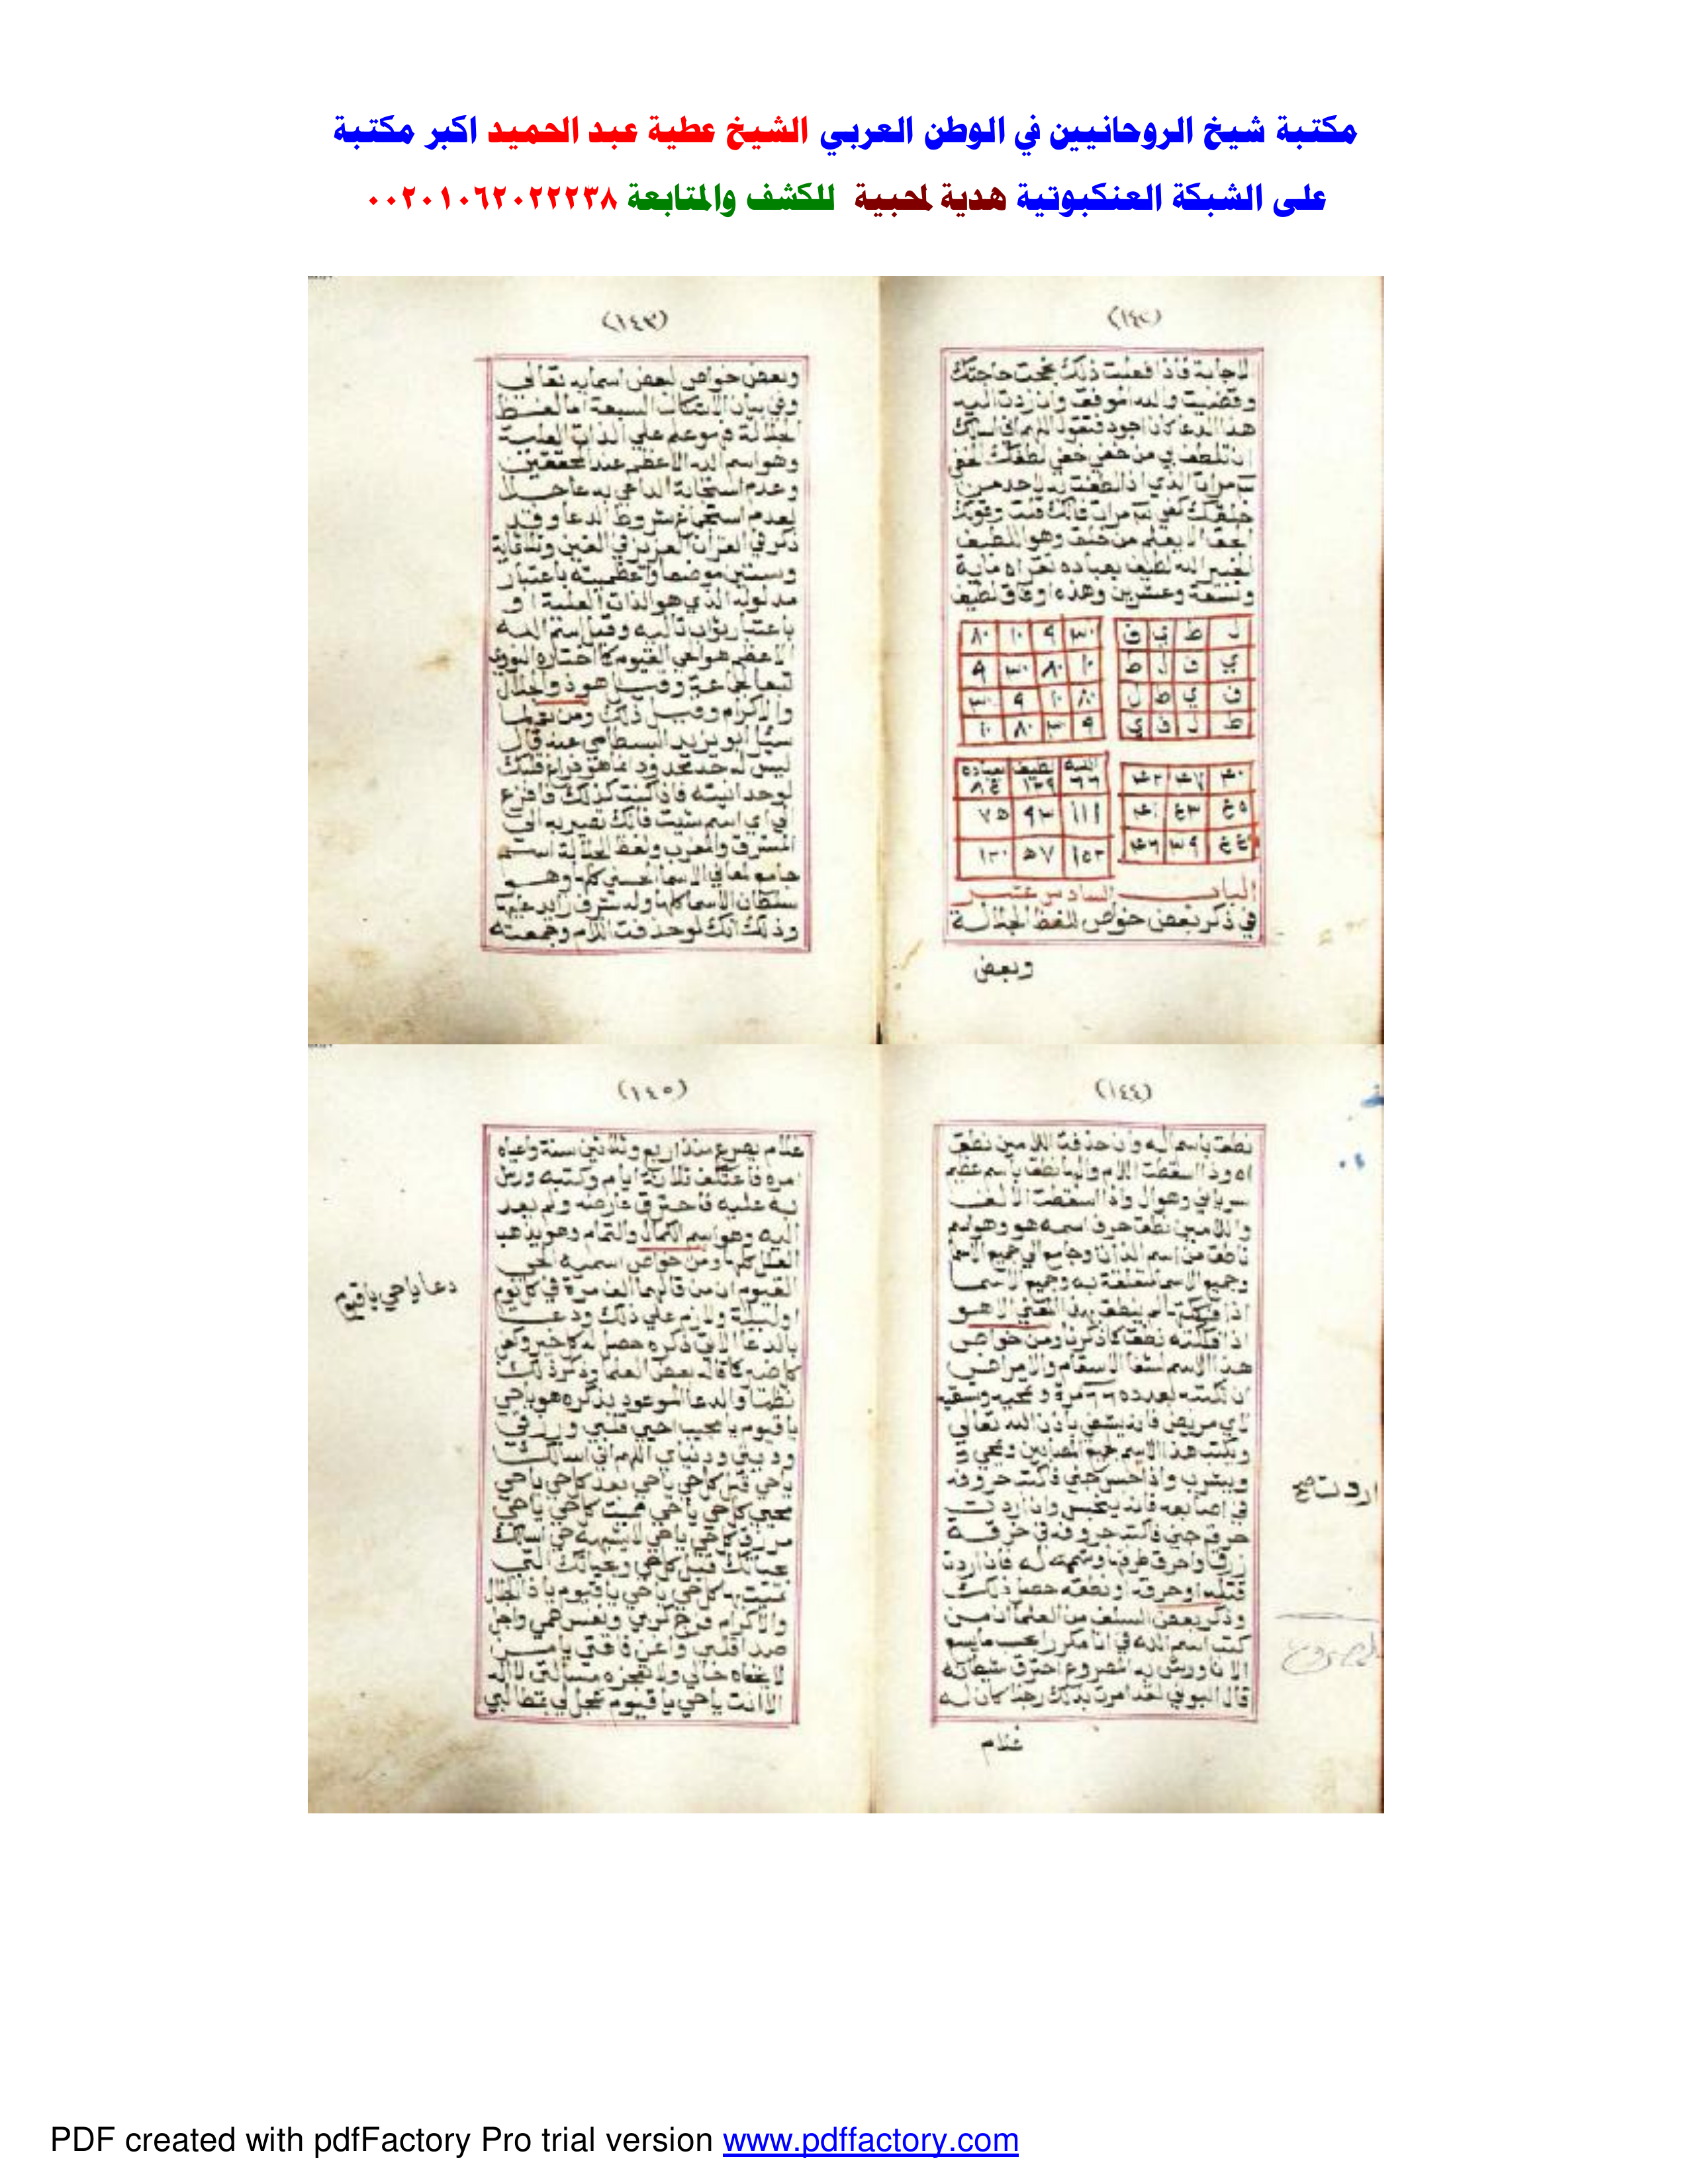 مكتبة شيخ الروحانيين في الوطن العربي الشيخ عطية عبد الحميد اكبر مكتبة
على الشبكة العنكبوتية هدية لمحبية للكشف والمتابعة ٠٠٢٠١٠٦٢٠٢٢٢٣٨
(١٤٢)
للاجابة فاذا فعلت ذلك نجحت حاجتك
وقضيت والله الموفق وان زدت اليه
هذا الدعا كان اجود فتقول اللهم اني اسالك
ان تلطف بي من خفي خفي لطفك الخفي
مرات الذي اذا لطفت به لاحد من
خلقك كفي مرات فانك قلت وقولك
الحق الا يعلم من خلق وهو اللطيف
الخبير الله لطيف بعباده تقراه ماية
وتسعة وعشرين وهذه اوفاق لطيف
ل ط ي ف
ي ف ل ط
ف ي ط ل
ط ل ف ي
٣٠ ٩ ١٠ ٨٠
١٠ ٨٠ ٣٠ ٩
٨٠ ١٠ ٩ ٣٠
٩ ٣٠ ٨٠ ١٠
الله لطيف بعباده
٦٦ ١٢٩ ٨٤
١١١ ٩٣ ٧٥
١٠٢ ٥٧ ١٢٠
الباب السادس عشر
في ذكر بعض خواص للفظ الجلالة
وبعض
(١٤٣)
وبعض خواص لبعض اسمايه تعالي
وفي بيان الاشكال السبعة اما لفظ
الجلالة فهو علم علي الذات العلية
وهو اسم الله الاعظم عند المحققين
وعدم استجابة الداعي به عاجلا
لعدم استجماع شروط الدعا وقد
ذكر في القران العزيز في الفين وثلثماية
وستين موضعا واعظميته باعتبار
مدلوله الذي هو الذات العلية او
باعتبار ثواب تاليه وقيل اسم الله
الاعظم هو الحي القيوم كما اختاره النووي
تبعا لجماعة وقيل هو ذو الجلال
والاكرام وقيل ذلك ومن
سيل ابو يزيد البسطامي عنه قال
ليس له حد محدود انما هو فراغ قلبك
لوحدانيته فاذا كنت كذلك فافزع
الي اي اسم شيت فانك تصير به الي
المشرق والمغرب ولفظ الجلالة اسم
جامع لمعاني الاسما الحسني كلها وهو
سلطان الاسما كلها وله شرف زايد عليها
وذلك انك لو حذفت اللام وجمعته
(١٤٤)
نطق باسم اله وان حذفت اللامين نطق
اه وذا اسقطت اللام والها نطق باسم عظيم
سرياني وهو ال واذا اسقطت الالف
واللامين نطق حرف اسمه هو وهو اسم
ناطق من اسم الذات وجامع الي جميع الاسما
وجميع الاسما متعلقة به وجميع الاسما
اذا لم ينطق بهذا المعني الا هو
اذا نطق كما ذكرنا ومن خواص
هذا الاسم لشفا الاسقام والامراض
ان تكتبه بعدده ٦٦ مرة وتمحيه وتسقيه
لاي مريض فانه يشفي باذن الله تعالي
وتكتب هذا الاسم لجميع المصابين وتمحي
ويشرب واذا حبس جني فاكتب حروفه
في اصابعه فانه ينحبس وان اردت
حرق جني فاكتب حروفه في خرقة
زرقا واحرق طرفها وشممه له فان اردت
قتله او حرقه او نطقه حصل ذلك
وذكر بعض السلف من العلما ان من
كتب اسم الله في انا مكررا بحسب ما يسع
الانا ورش به المصروع احترق شيطانه
قال البوني لقد امرت بذلك رجلا كان له
غلام
اردت صح
(١٤٥)
غلام يصرع منذ اربع وثلاثين سنة واعياه
امره فاعتكف ثلاثة ايام وكتبه ورش
به عليه فاحترق عارضه ولم يعد
اليه وهو اسم الكمال والتمام وهو يذهب
العلل كلها ومن خواص اسميه الحي
القيوم ان من قالهما الف مرة في كل يوم
او ليلة ولازم علي ذلك ودعا
بالدعا الاتي ذكره حصل له كل خير وكفي
كل ضير كما قاله بعض العلما وذكر ذلك
نظما والدعا الموعود بذكره هو يا حي
يا قيوم يا محيب احيي قلبي وارزقني
وديني ودنياي اللهم اني اسالك
يا حي قبل كل حي يا حي بعد كل حي يا حي
محيي كل حي يا حي مميت كل حي يا حي
كل حي يا حي لا يشبهه حي اسالك
بحياتك قبل كل حي وبحياتك التي
كل حي يا حي يا قيوم يا ذا الجلال
والاكرام فرج كربي ونفس همي واجل
صدا قلبي واغن فاقتي يا من
لا يخفاه حالي ولا تعجزه مسالتي لا اله
الا انت يا حي يا قيوم عجل لي بمطالبي
دعا يا حي يا قيوم
PDF created with pdfFactory Pro trial version www.pdffactory.com